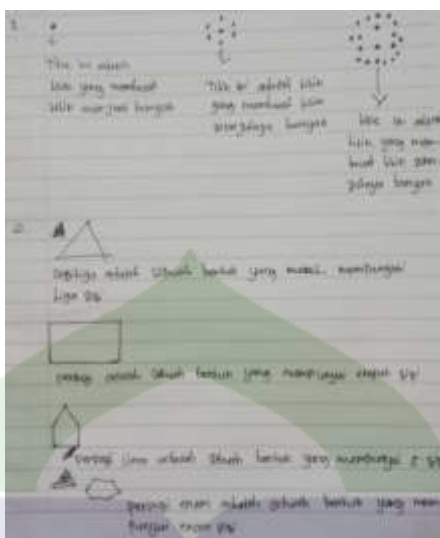 1.
Titik ini adalah
titik yang membuat
titik menjadi banyak
Titik ini adalah titik
yang membuat titik
banyak
titik ini
titik yang mem-
buat titik
banyak
2.
Segitiga adalah sebuah bentuk yang mempunyai
tiga sisi
persegi adalah sebuah bentuk yang mempunyai empat sisi
persegi lima adalah sebuah bentuk yang mempunyai 5 sisi
persegi enam adalah sebuah bentuk yang mem-
punyai enam sisi